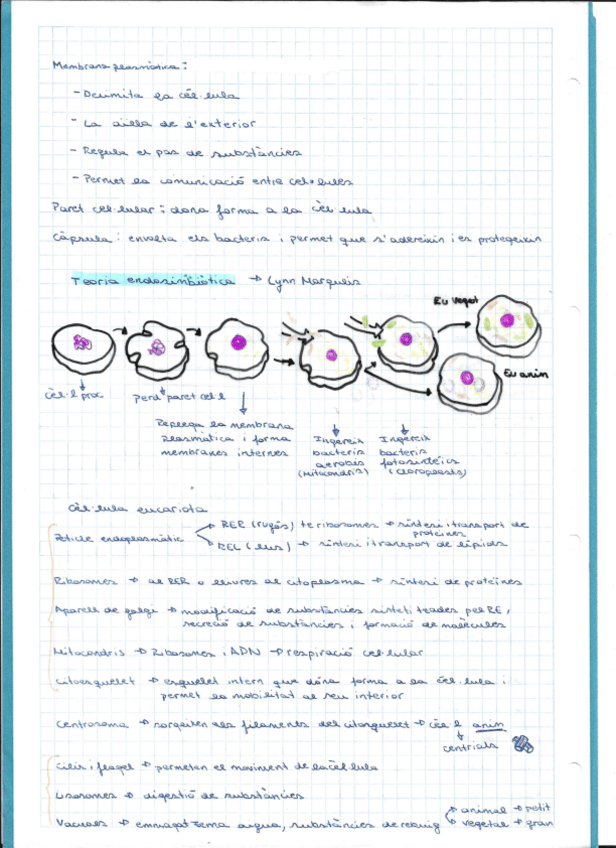 Membrana plasmàtica:
- Delimita la cèl·lula
- La aïlla de l'exterior
- Regula el pas de substàncies
- Permet la comunicació entre cel·lules
Paret cel·lular: dona forma a la cèl·lula
Càpsula: envolta els bacteris i permet que s'adereixin i es protegeixin
Teoria endosimbiòtica → Lynn Margulis
Eu veget
Eu anim
Cèl·l proc
Perd paret cel·l
Replega la membrana
plasmàtica i forma
membranes internes
Ingereix
bacteris
aerobis
(Mitocondris)
Ingereix
bacteris
fotosintèics
(Cloroplasts)
Cèl·lula eucariota
Reticle endoplasmàtic
RER (rugós) te ribosomes → síntesi i transport de
proteïnes
REL (llis) → síntesi i transport de lípids
Ribosomes → al RER o lliures al citoplasma → síntesi de proteïnes
Aparell de golgi → modificació de substàncies sintetitzades pel RE,
secreció de substàncies i formació de molècules
Mitocondris → Ribosomes i ADN → respiració cel·lular
Citoesquelet → esquelet intern que dóna forma a la cèl·lula i
permet la mobilitat al seu interior
Centrosoma → els filaments del → cèl·l anim
centriols
Cilis i flagel → permeten el moviment de la cèl·lula
Lisosomes → digestió de substàncies
Vacuoles → aigua, substàncies de rebuig
animal → petit
vegetal → gran